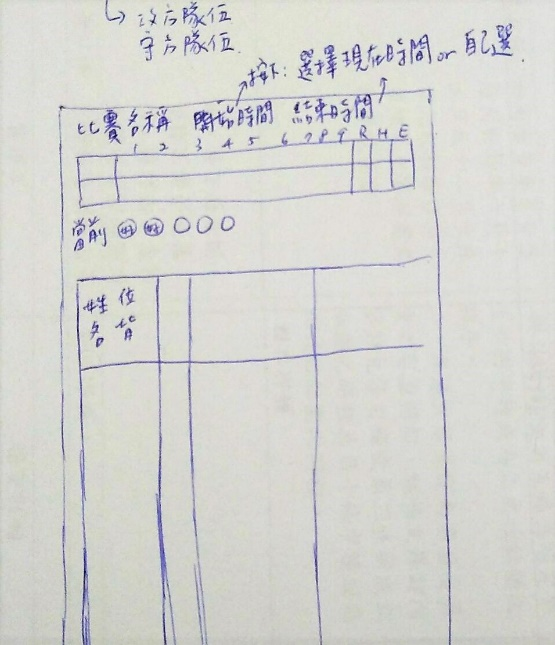 ↳ 攻方隊伍
守方隊伍
按下: 選擇現在時間 or 自己選
比賽名稱 開始時間 結束時間
1 2 3 4 5 6 7 8 9 R H E
當前 好 好
姓名 位
背